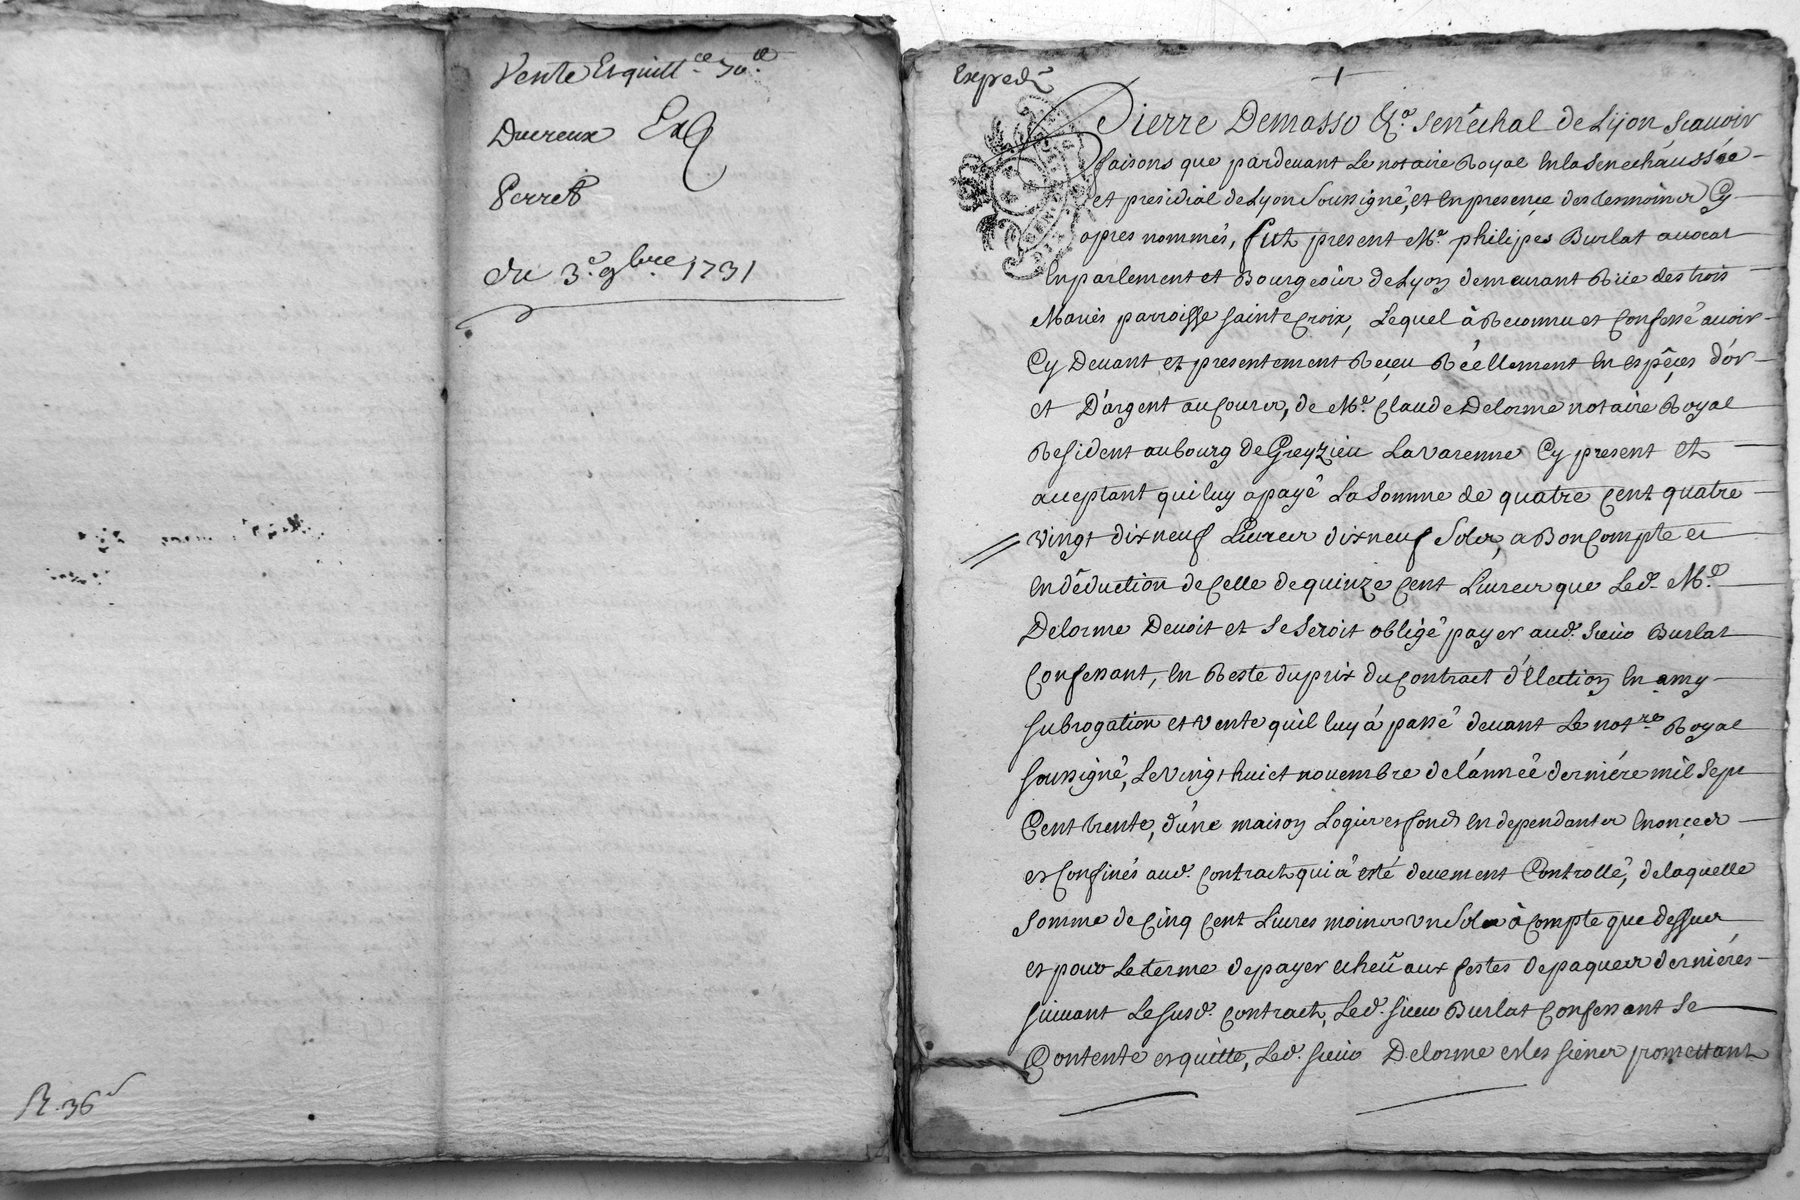 Vente Et quitt.ce
Ducreux Ex
Perret
du 3.e 9bre 1731
R. 36
Exped.
Pierre Demasso &.a senéchal de Lyon scauoir
faisons que pardeuant Le notaire Royal en la senechaussée
et presidial de Lyon soussigné, et en presence des tesmoins Cy
apres nommés, fut present M.e philipes Burlat auocat
en parlement et Bourgeois de Lyon demeurant Rüe des trois
Maries parroisse sainte Croix, Lequel à Reconnu et Confessé auoir
Cy Deuant et presentement Reçeu Réellement en espèces d'or
et D'argent au Cours, de M.e Claude Delorme notaire Royal
Resident au bourg de Greyzieu Lavarenne Cy present et
acceptant qui luy a payé La Somme de quatre Cent quatre
vingt dixneuf Liures dixneuf Sols, a Bon Compte et
en déduction de Celle de quinze Cent Liures que Led. M.e
Delorme Deuoit et se seroit obligé payer aud. sieur Burlat
Confessant, en Reste du prix du Contract d'élection en amy
subrogation et vente qu'il luy à passé deuant Le not.re Royal
soussigné, Le vingt huict nouembre de l'année derniére mil sept
Cent trente, d'une maison Logis et fonds en dependants enonçes
et Confinés aud. Contract qui à esté deuement Controllé, de laquelle
somme de Cinq Cent Liures moins un Sol à Compte que dessus
et pour Le terme de payer echeu aux festes de paques derniéres
suiuant Le susd. Contract, Led. sieur Burlat Confessant se
Contente et quitte, Led. sieur Delorme et les siens promettant